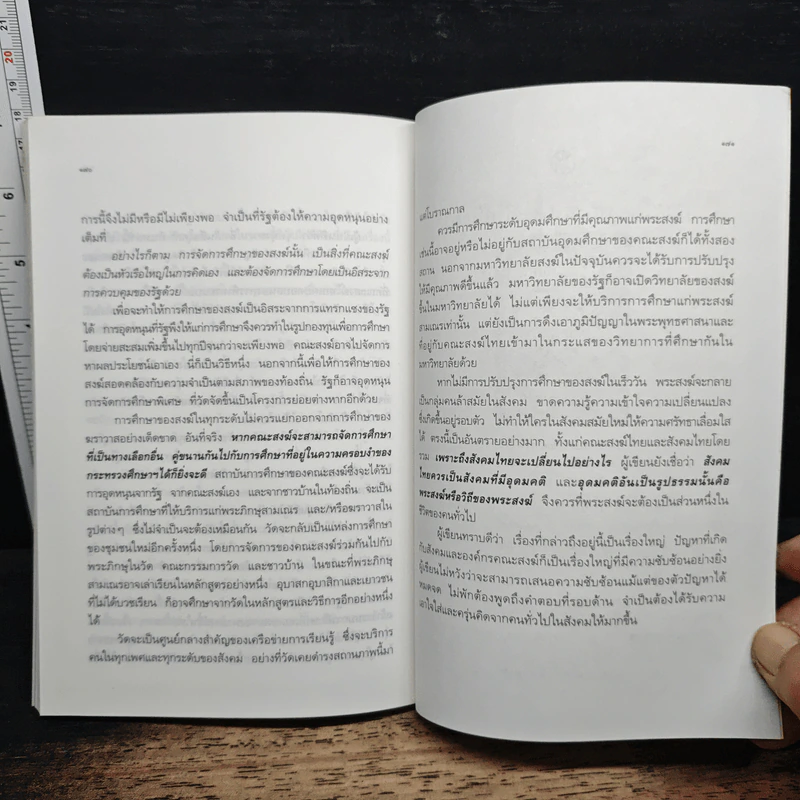 การนี้จึงไม่มีหรือมีไม่เพียงพอ จำเป็นที่รัฐต้องให้ความอุดหนุนอย่าง
เต็มที่
อย่างไรก็ตาม การจัดการศึกษาของสงฆ์นั้น เป็นสิ่งที่คณะสงฆ์
ต้องเป็นหัวเรือใหญ่ในการคิดเอง และต้องจัดการศึกษาโดยเป็นอิสระจาก
การควบคุมของรัฐด้วย
เพื่อจะทำให้การศึกษาของสงฆ์เป็นอิสระจากการแทรกแซงของรัฐ
ได้ การอุดหนุนที่รัฐพึงให้แก่การศึกษาจึงควรทำในรูปกองทุนเพื่อการศึกษา
โดยจ่ายสะสมเพิ่มขึ้นไปทุกปีจนกว่าจะเพียงพอ คณะสงฆ์อาจไปจัดการ
หาผลประโยชน์เอาเอง นี่ก็เป็นวิธีหนึ่ง นอกจากนี้เพื่อให้การศึกษาของ
สงฆ์สอดคล้องกับความจำเป็นตามสภาพของท้องถิ่น รัฐก็อาจอุดหนุน
การจัดการศึกษาพิเศษ ที่วัดจัดขึ้นเป็นโครงการย่อยต่างหากอีกด้วย
การศึกษาของสงฆ์ในทุกระดับไม่ควรแยกออกจากการศึกษาของ
ฆราวาสอย่างเด็ดขาด อันที่จริง หากคณะสงฆ์จะสามารถจัดการศึกษา
ที่เป็นทางเลือกอื่น คู่ขนานกันไปกับการศึกษาที่อยู่ในความครอบงำของ
กระทรวงศึกษาฯได้ก็ยิ่งจะดี สถาบันการศึกษาของคณะสงฆ์ซึ่งจะได้รับ
การอุดหนุนจากรัฐ จากคณะสงฆ์เอง และจากชาวบ้านในท้องถิ่น จะเป็น
สถาบันการศึกษาที่ให้บริการแก่พระภิกษุสามเณร และ/หรือฆราวาสใน
รูปต่างๆ ซึ่งไม่จำเป็นจะต้องเหมือนกัน วัดจะกลับเป็นแหล่งการศึกษา
ของชุมชนใหม่อีกครั้งหนึ่ง โดยการจัดการของคณะสงฆ์ร่วมกันไปกับ
พระภิกษุในวัด คณะกรรมการวัด และชาวบ้าน ในขณะที่พระภิกษุ
สามเณรอาจเล่าเรียนในหลักสูตรอย่างหนึ่ง อุบาสกอุบาสิกาและเยาวชน
ที่ไม่ได้บวชเรียน ก็อาจศึกษาจากวัดในหลักสูตรและวิธีการอีกอย่างหนึ่ง
ได้
วัดจะเป็นศูนย์กลางสำคัญของเครือข่ายการเรียนรู้ ซึ่งจะบริการ
คนในทุกเพศและทุกระดับของสังคม อย่างที่วัดเคยดำรงสถานภาพนี้มา
๑๗๑
แต่โบราณกาล
ควรมีการศึกษาระดับอุดมศึกษาที่มีคุณภาพแก่พระสงฆ์ การศึกษา
เช่นนี้อาจอยู่หรือไม่อยู่กับสถาบันอุดมศึกษาของคณะสงฆ์ก็ได้ทั้งสอง
สถาน นอกจากมหาวิทยาลัยสงฆ์ในปัจจุบันควรจะได้รับการปรับปรุง
ให้มีคุณภาพดีขึ้นแล้ว มหาวิทยาลัยของรัฐก็อาจเปิดวิทยาลัยของสงฆ์
ขึ้นในมหาวิทยาลัยได้ ไม่แต่เพียงจะให้บริการการศึกษาแก่พระสงฆ์
สามเณรเท่านั้น แต่ยังเป็นการดึงเอาภูมิปัญญาในพระพุทธศาสนาและ
ที่อยู่กับคณะสงฆ์ไทยเข้ามาในกระแสของวิทยาการที่ศึกษากันใน
มหาวิทยาลัยด้วย
หากไม่มีการปรับปรุงการศึกษาของสงฆ์ในเร็ววัน พระสงฆ์จะกลาย
เป็นกลุ่มคนล้าสมัยในสังคม ขาดความรู้ความเข้าใจความเปลี่ยนแปลง
ซึ่งเกิดขึ้นอยู่รอบตัว ไม่ทำให้ใครในสังคมสมัยใหม่ให้ความศรัทธาเลื่อมใส
ได้ ตรงนี้เป็นอันตรายอย่างมาก ทั้งแก่คณะสงฆ์ไทยและสังคมไทยโดย
รวม เพราะถึงสังคมไทยจะเปลี่ยนไปอย่างไร ผู้เขียนยังเชื่อว่า สังคม
ไทยควรเป็นสังคมที่มีอุดมคติ และอุดมคติอันเป็นรูปธรรมนั้นคือ
พระสงฆ์หรือวิถีของพระสงฆ์ จึงควรที่พระสงฆ์จะต้องเป็นส่วนหนึ่งใน
ชีวิตของคนทั่วไป
ผู้เขียนทราบดีว่า เรื่องที่กล่าวถึงอยู่นี้เป็นเรื่องใหญ่ ปัญหาที่เกิด
กับสังคมและองค์กรคณะสงฆ์ก็เป็นเรื่องใหญ่ที่มีความซับซ้อนอย่างยิ่ง
ผู้เขียนไม่หวังว่าจะสามารถเสนอความซับซ้อนแม้แต่ของตัวปัญหาได้
หมดจด ไม่พักต้องพูดถึงคำตอบที่รอบด้าน จำเป็นต้องได้รับความ
เอาใจใส่และครุ่นคิดจากคนทั่วไปในสังคมให้มากขึ้น